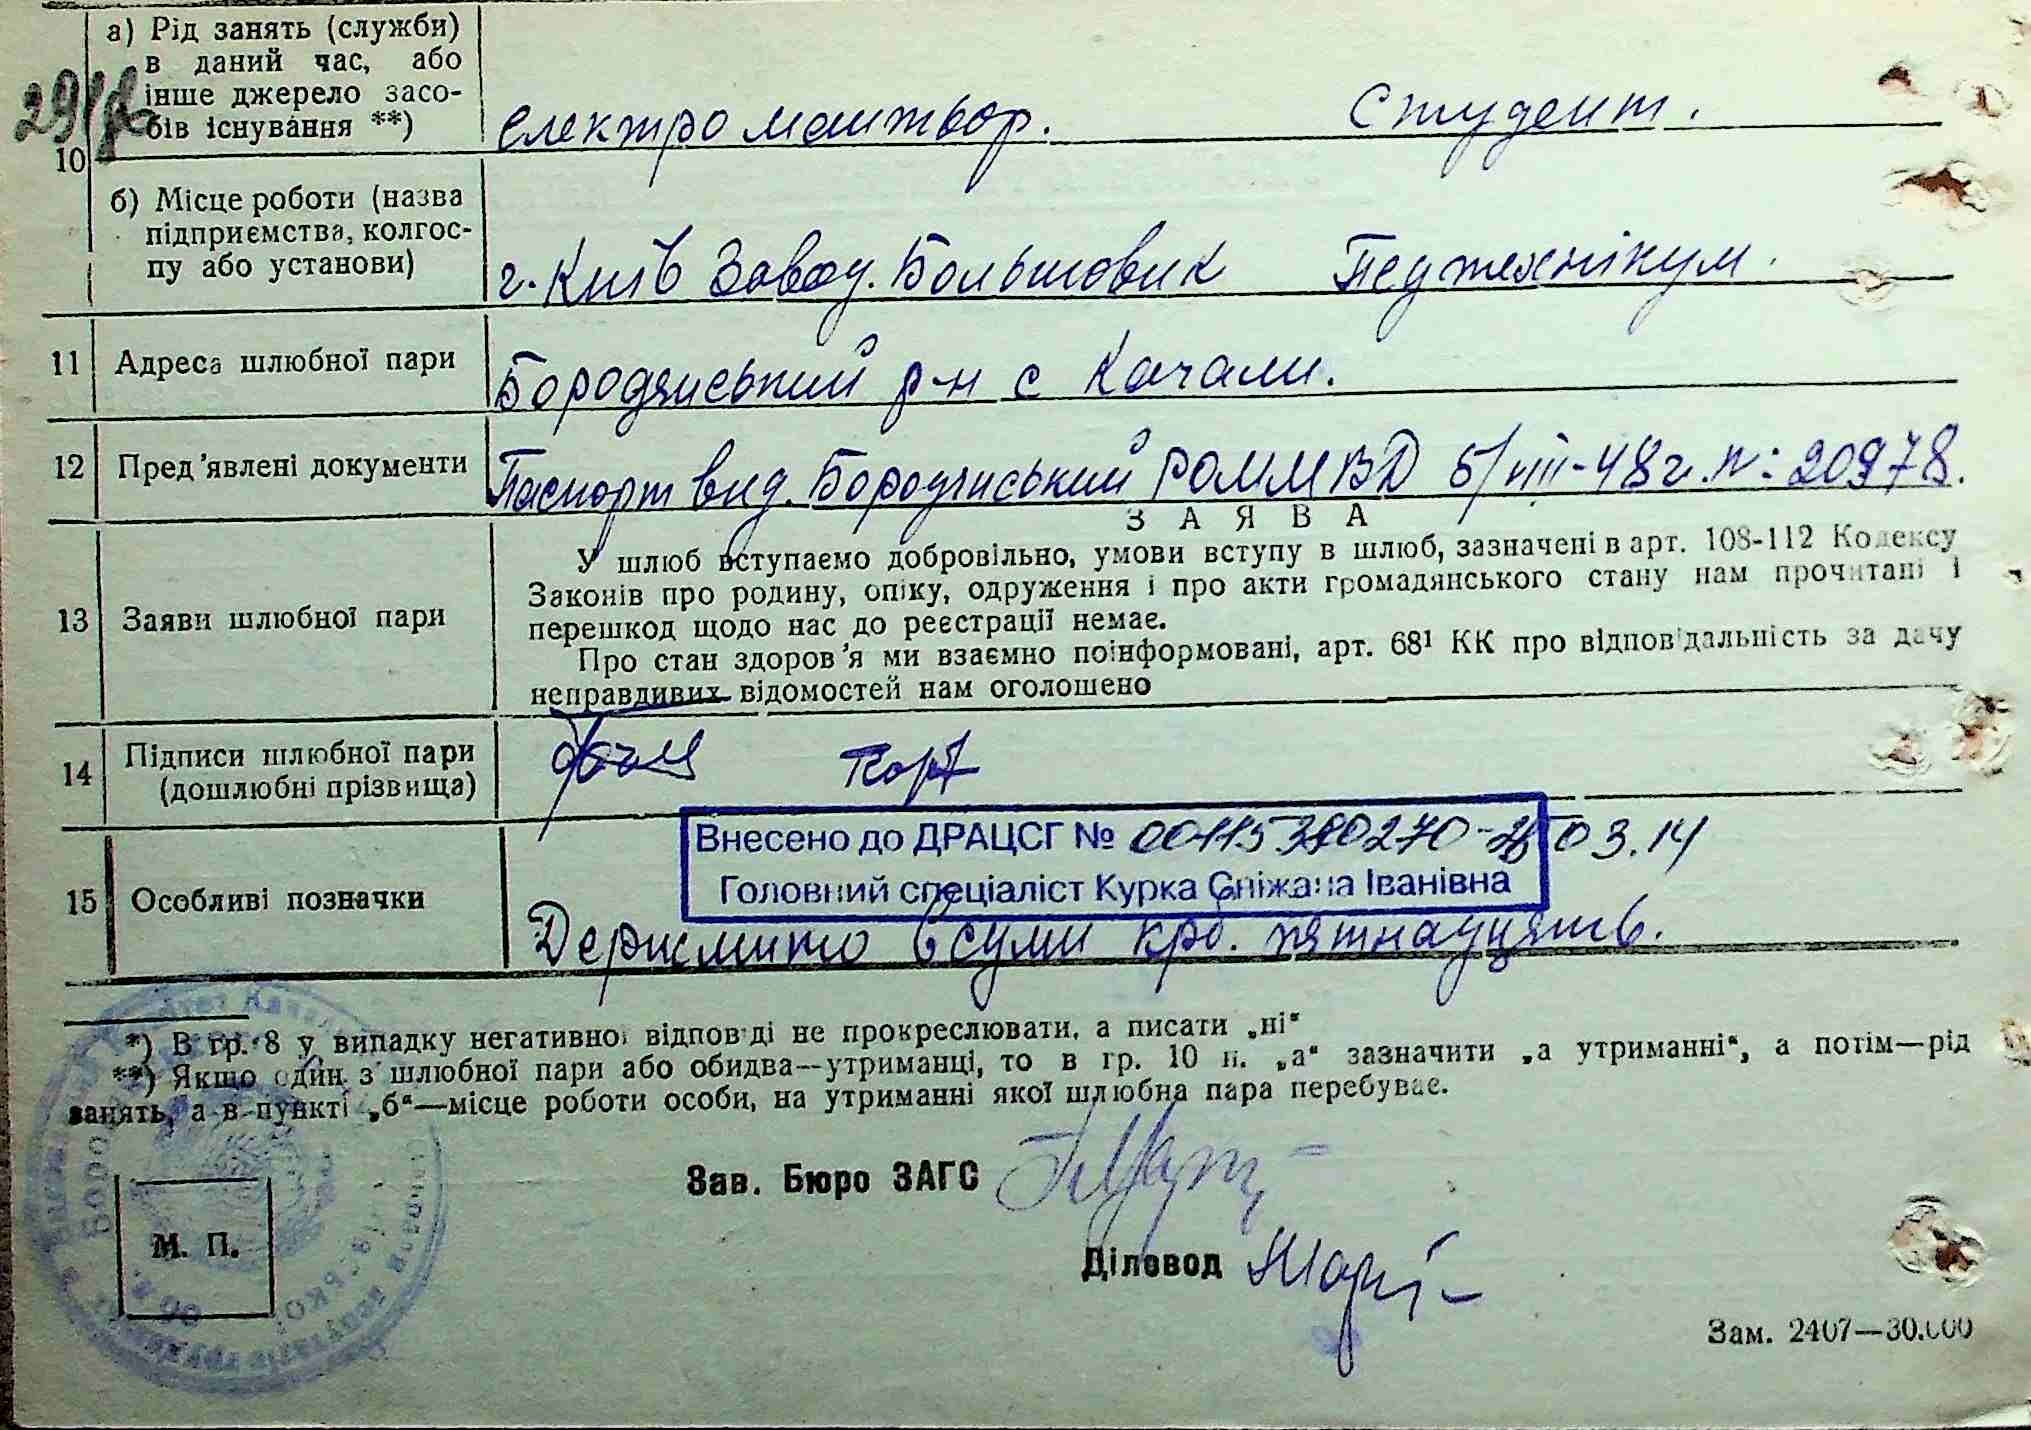 а) Рід занять (служби)
в даний час, або
інше джерело засо-
бів існування **)
електро монтьор. Студент.
10
б) Місце роботи (назва
підприємства, колгос-
пу або установи)
г. Київ Завод. Большовик Педтехнікум.
11 Адреса шлюбної пари
Бородянський р-н с Качали.
12 Пред'явлені документи
Паспорт вид. Бородянський РОММВД 5/VIII-48г. №: 20978.
ЗАЯВА
13 Заяви шлюбної пари
У шлюб вступаємо добровільно, умови вступу в шлюб, зазначені в арт. 108-112 Кодексу
Законів про родину, опіку, одруження і про акти громадянського стану нам прочитані і
перешкод щодо нас до реєстрації немає.
Про стан здоров'я ми взаємно поінформовані, арт. 68¹ КК про відповідальність за дачу
неправдивих відомостей нам оголошено
14 Підписи шлюбної пари
(дошлюбні прізвища)
Внесено до ДРАЦСГ № 03.14
Головний спеціаліст Курка Сніжана Іванівна
15 Особливі позначки
Держмито в сумі крб. пятнадцять.
*) В гр. 8 у випадку негативної відповіді не прокреслювати, а писати „ні“
**) Якщо один з шлюбної пари або обидва—утриманці, то в гр. 10 п. „а“ зазначити „а утриманні“, а потім—рід
занять, а в пункті „б“—місце роботи особи, на утриманні якої шлюбна пара перебуває.
Зав. Бюро ЗАГС
М. П.
Діловод
Зам. 2407—30.000